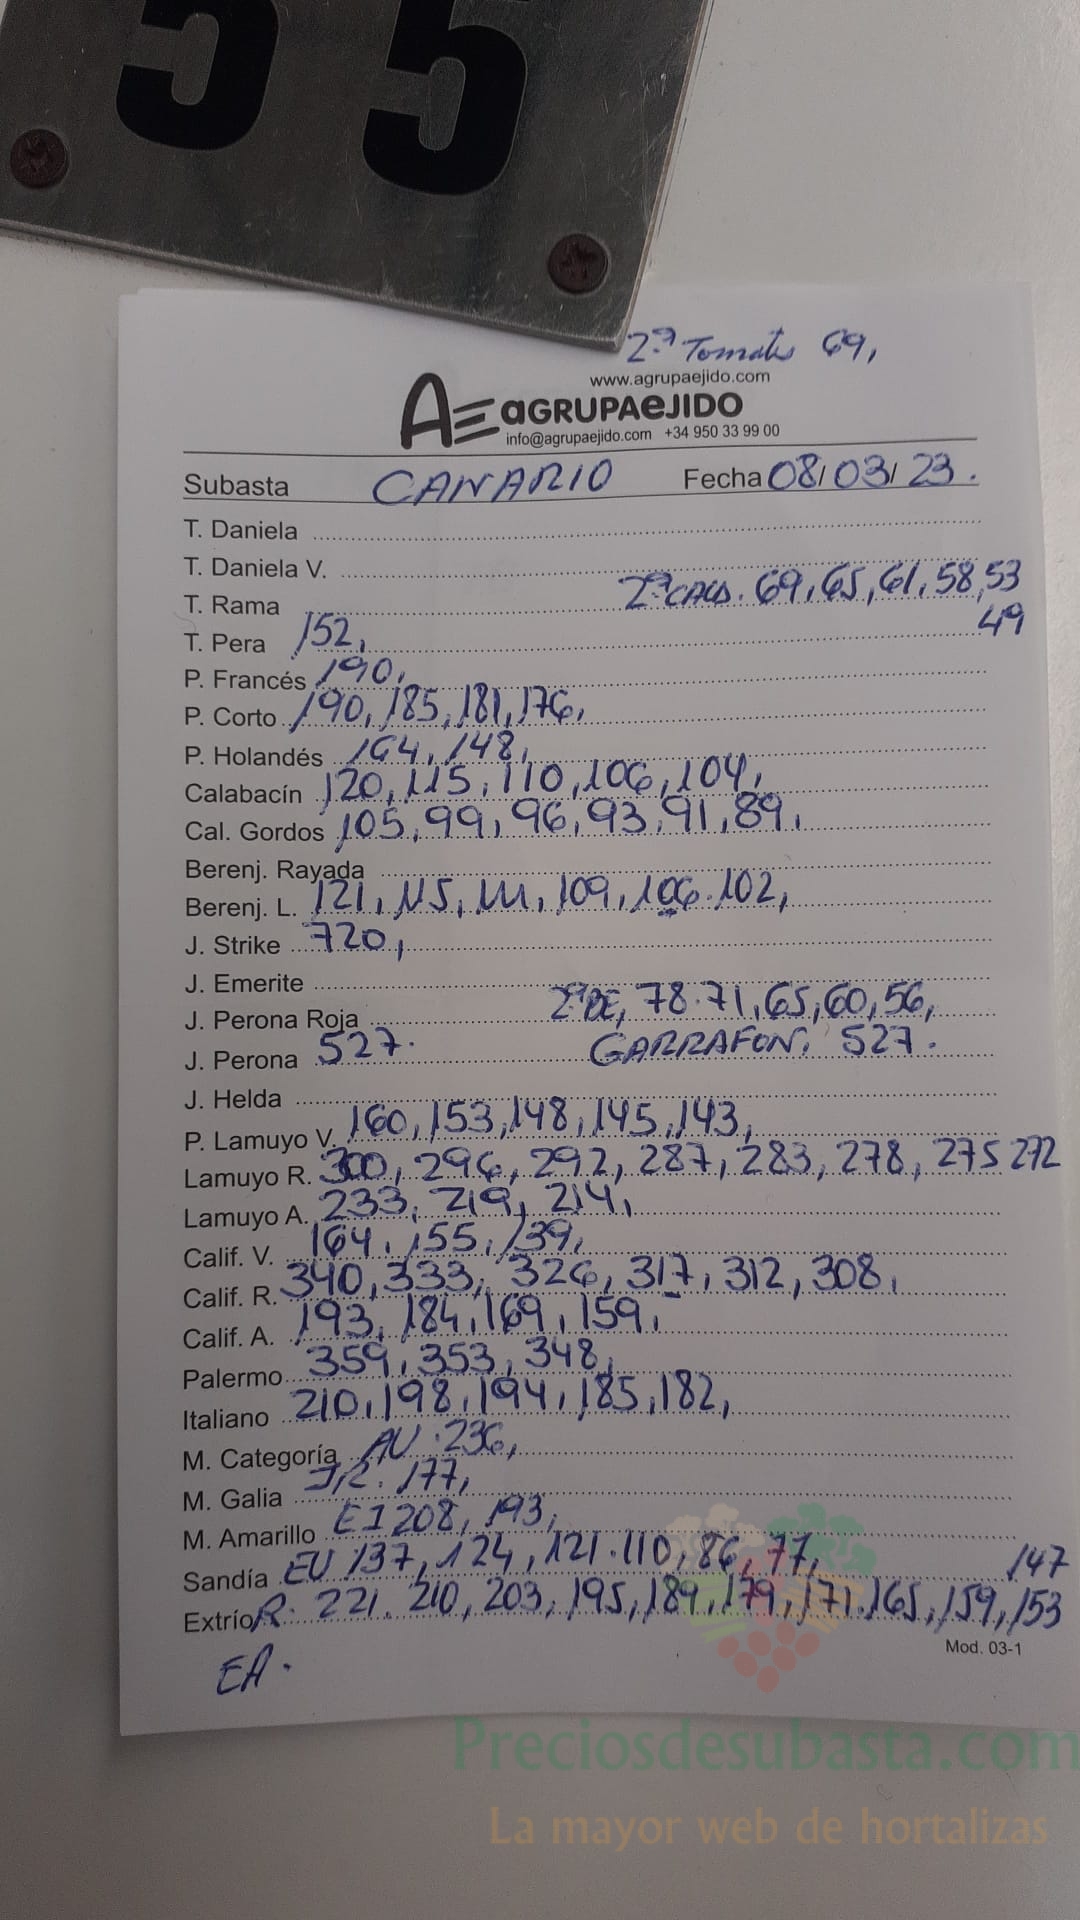 55
2ª Tomate 69,
www.agrupaejido.com
AE aGRUPAeJIDO
info@agrupaejido.com +34 950 33 99 00
Subasta CANARIO Fecha 08/03/23.
T. Daniela
T. Daniela V.
T. Rama 2ª CALA. 69, 65, 61, 58, 53
49
T. Pera 152,
P. Francés 190,
P. Corto 190, 185, 181, 176,
P. Holandés 164, 148,
Calabacín 120, 115, 110, 106, 104,
Cal. Gordos 105, 99, 96, 93, 91, 89,
Berenj. Rayada
Berenj. L. 121, 115, 111, 109, 106. 102,
J. Strike 720,
J. Emerite
J. Perona Roja 2ª BE, 78. 71, 65, 60, 56,
J. Perona 527. GARRAFON, 527.
J. Helda
P. Lamuyo V. 160, 153, 148, 145, 143,
Lamuyo R. 300, 296, 292, 287, 283, 278, 275 272
Lamuyo A. 233, 219, 214,
Calif. V. 164, 155, 139,
Calif. R. 340, 333, 326, 317, 312, 308,
Calif. A. 193, 184, 169, 159,
Palermo 359, 353, 348,
Italiano 210, 198, 194, 185, 182,
M. Categoría AV. 236,
M. Galia JR. 177,
M. Amarillo EI 208, 193,
Sandía EV 137, 124, 121. 110, 86, 77, 147
Extrío R. 221. 210, 203, 195, 189, 179, 171. 165, 159, 153
EA.
Mod. 03-1
Preciosdesubasta.com
La mayor web de hortalizas